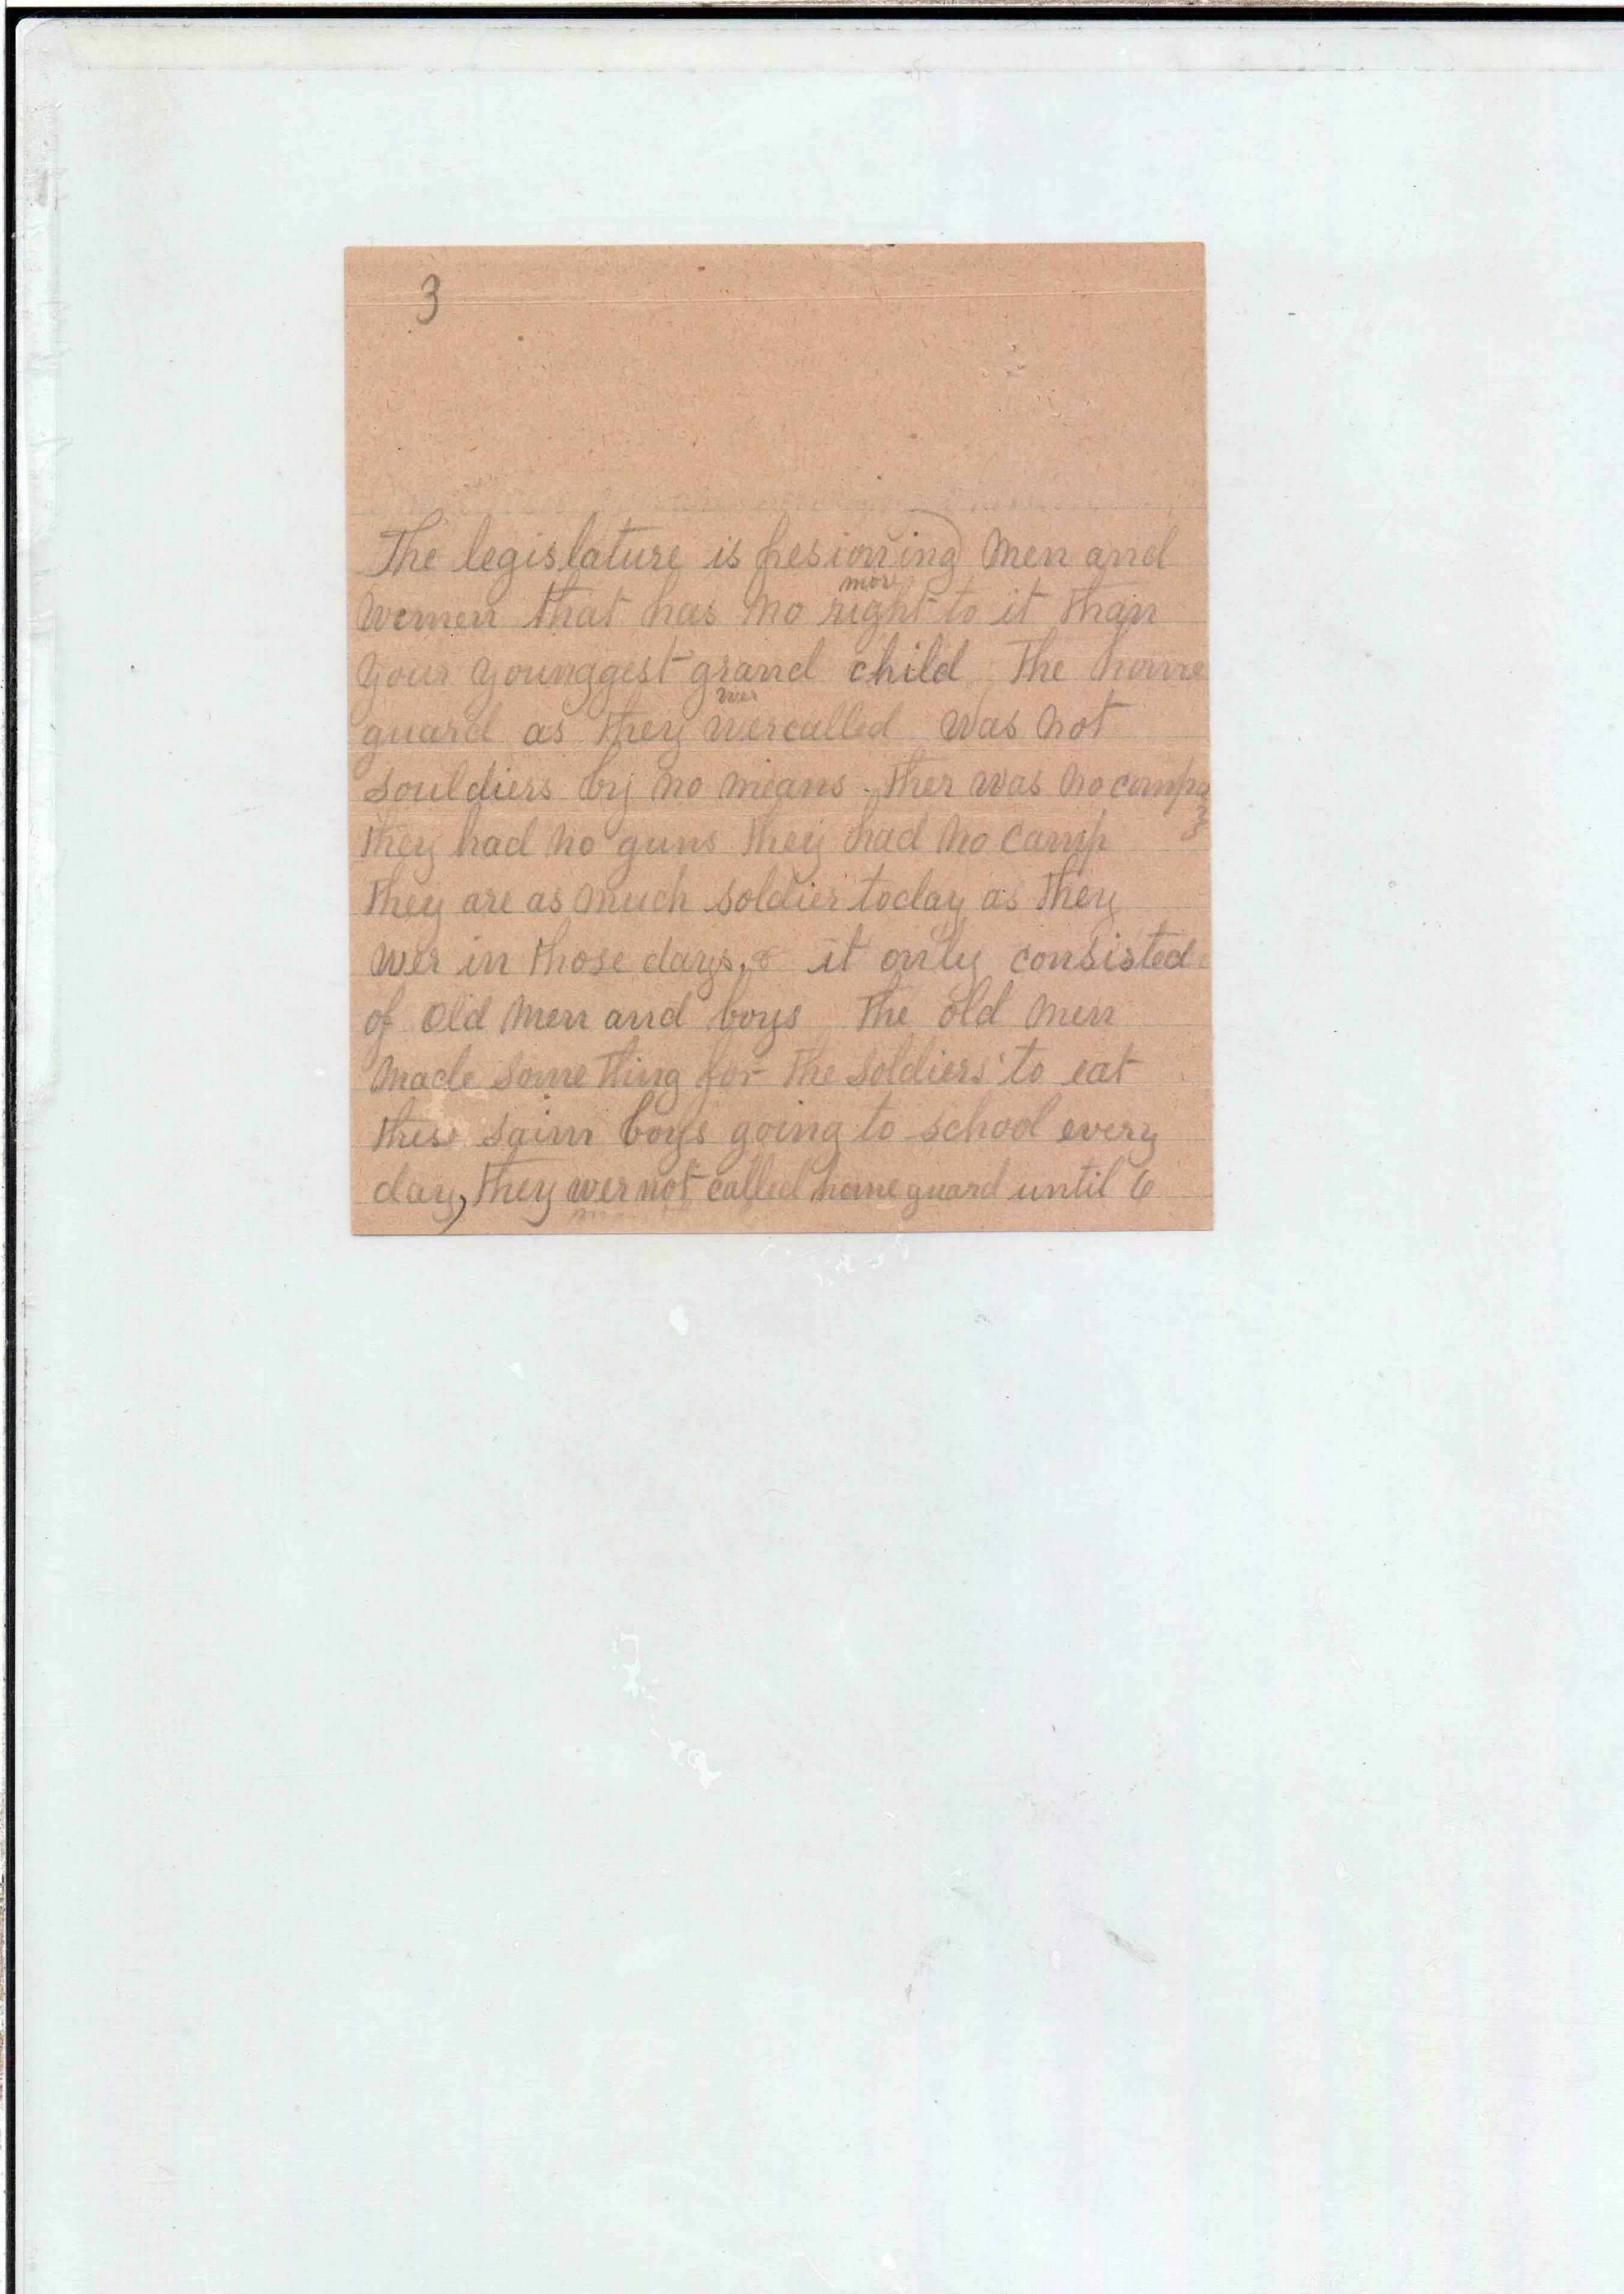 3
The legislature is pesioning men and
more
women that has no right to it than
your younggest grand child The home
wer
guard as they wercalled was not
souldiers by no means. Ther was no camps
they had no guns they had no camp
They are as much soldier today as they
wer in those days. & it only consisted
of old men and boys The old men
made some thing for the soldiers to eat
these saim boys going to school every
day, they wer not called home guard until 6